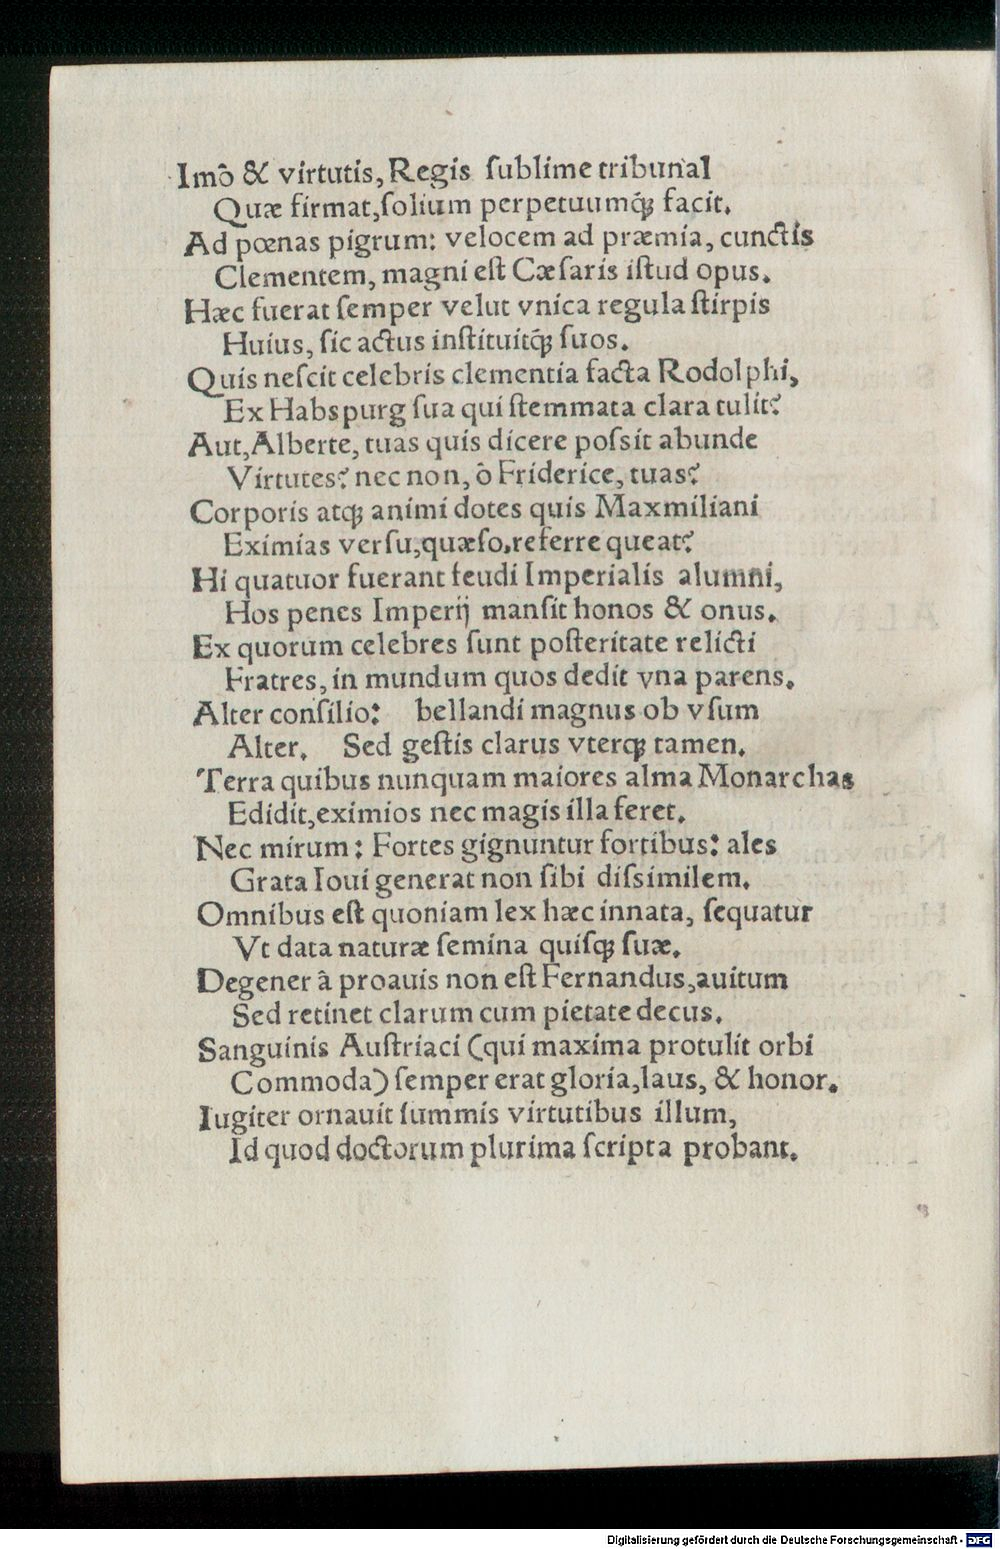 Imô & virtutis, Regis ſublime tribunal
Quæ firmat, ſolium perpetuumq́ꝫ facit.
Ad pœnas pigrum: velocem ad præmia, cunctis
Clementem, magni eſt Cæſaris iſtud opus.
Hæc fuerat ſemper velut vnica regula ſtirpis
Huius, ſic actus inſtituitq́ꝫ ſuos.
Quis neſcit celebris clementia facta Rodolphi,
Ex Habspurg ſua qui ſtemmata clara tulit?
Aut, Alberte, tuas quis dicere poſsit abunde
Virtutes? nec non, ô Friderice, tuas?
Corporis atqꝫ animi dotes quis Maxmiliani
Eximias verſu, quæſo, referre queat?
Hi quatuor fuerant feudi Imperialis alumni,
Hos penes Imperij manſit honos & onus.
Ex quorum celebres ſunt poſteritate relicti
Fratres, in mundum quos dedit vna parens.
Alter conſilio: bellandi magnus ob vſum
Alter. Sed geſtis clarus vterqꝫ tamen.
Terra quibus nunquam maiores alma Monarchas
Edidit, eximios nec magis illa feret.
Nec mirum: Fortes gignuntur fortibus: ales
Grata Ioui generat non ſibi diſsimilem.
Omnibus eſt quoniam lex hæc innata, ſequatur
Vt data naturæ ſemina quiſqꝫ ſuæ.
Degener â proauis non eſt Fernandus, auitum
Sed retinet clarum cum pietate decus.
Sanguinis Auſtriaci (qui maxima protulit orbi
Commoda) ſemper erat gloria, laus, & honor.
Iugiter ornauit ſummis virtutibus illum,
Id quod doctorum plurima ſcripta probant.
Digitalisierung gefördert durch die Deutsche Forschungsgemeinschaft - DFG